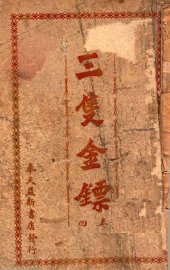 三隻金鏢
四
奉天益新書店發行